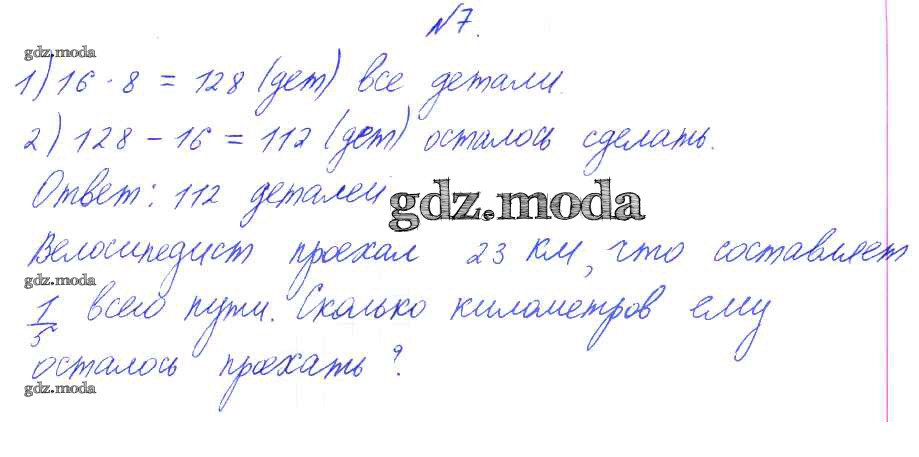 №7.
gdz.moda
1) 16 · 8 = 128 (дет) все детали.
2) 128 - 16 = 112 (дет) осталось сделать.
Ответ: 112 деталей
gdz.moda
Велосипедист проехал 23 км, что составляет
gdz.moda
1/5 всего пути. Сколько километров ему
осталось проехать?
gdz.moda